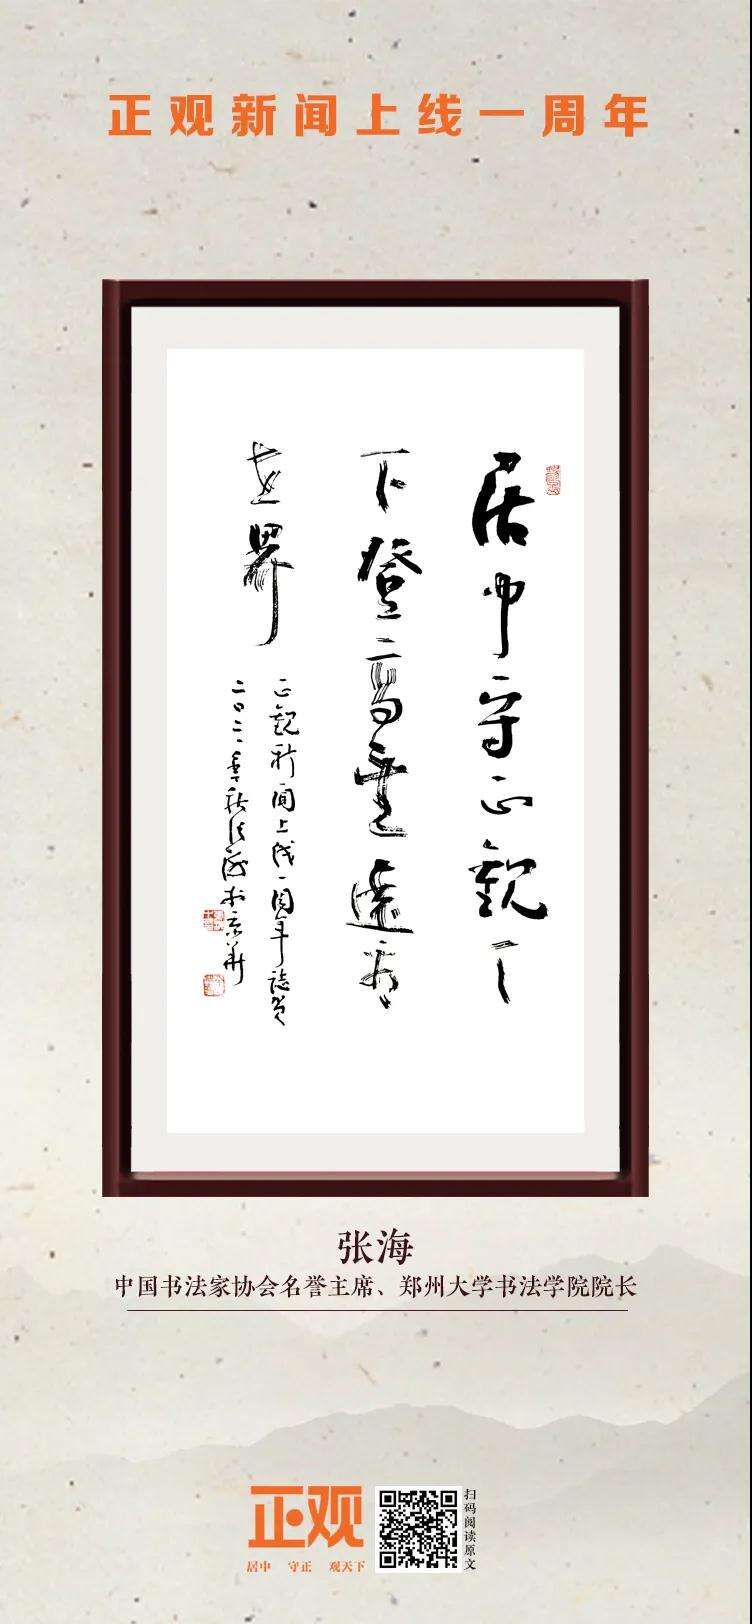 正观新闻上线一周年
居中守正觀天
下登高望遠看
世界
正觀新闻上线一周年誌贺
二〇二一年秋张海於京華
张海
中国书法家协会名誉主席、郑州大学书法学院院长
正观
居中 守正 观天下
扫码阅读原文